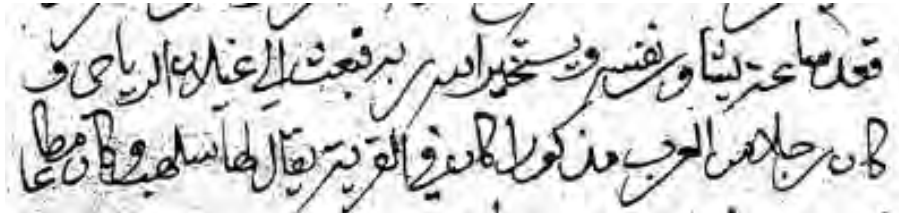 فعد ساعة يشاور نفسه ويستخير الله ربه فبعث الى غيلان الرياحى و
كان رجلا من العرب مذكورا كان في القرية يقال لها سلهب وكان مطاعا